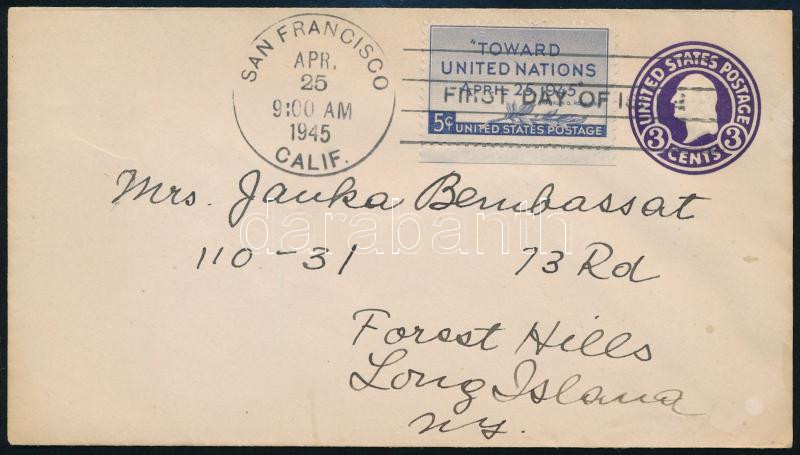 SAN FRANCISCO
APR.
25
9:00 AM
1945
CALIF.
"TOWARD
UNITED NATIONS
APRIL 25, 1945"
FIRST DAY OF IS
5¢ UNITED STATES POSTAGE
UNITED STATES POSTAGE
3 CENTS 3
Mrs. Janka Bembassat
110-31 73 Rd
Forest Hills
Long Island
NY.
darabanth